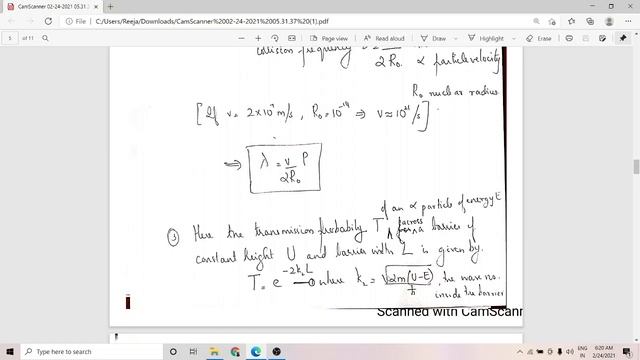 CamScanner 02-24-2021 05.31.37
File | C:/Users/Reeja/Downloads/CamScanner%2002-24-2021%2005.31.37%20(1).pdf
5 of 11
Page view
Read aloud
Draw
Highlight
Erase
collision frequency
2R₀ α particle velocity
R₀ nuclear radius
[If v = 2×10⁷ m/s, R₀ = 10⁻¹⁴ ⇒ ν ≈ 10²¹/s]
⇒ λ = v/2R₀ P
of an α particle of energy E
③ Here the transmission probability T across a barrier of
constant height U and barrier width L is given by.
T = e^(-2k₂L) —① where k₂ = √(2m(U-E))/ħ, the wave no.
inside the barrier
Scanned with CamScanner
Type here to search
ENG
IN
6:20 AM
2/24/2021